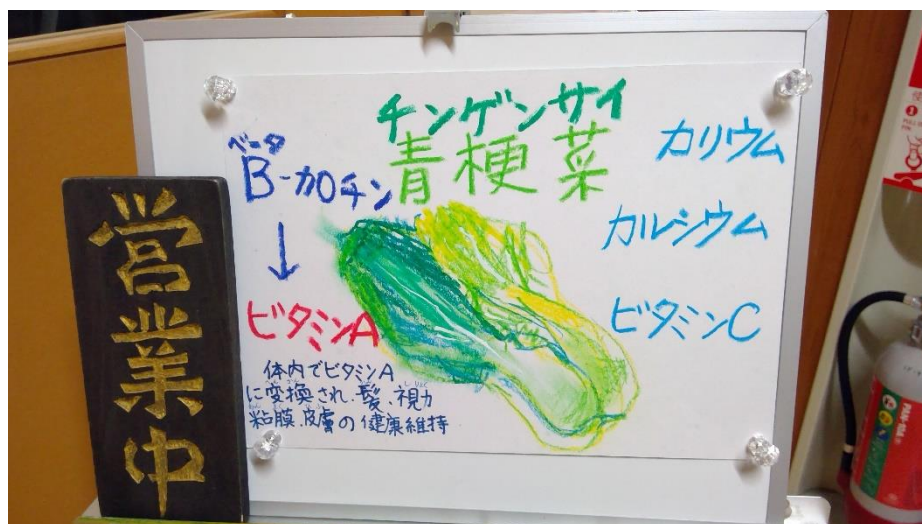 営業中
チンゲンサイ
青梗菜
ベータ
B-カロチン
↓
ビタミンA
体内でビタミンA
に変換され、髪、視力
粘膜、皮膚の健康維持
カリウム
カルシウム
ビタミンC